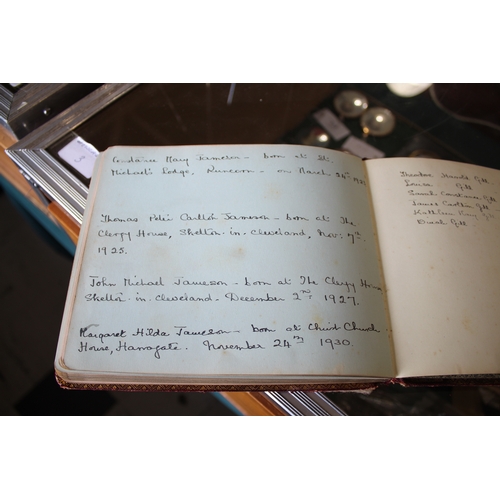 Constance Mary Jameson - born at St.
Michael's Lodge, Runcorn - on March 24th
Thomas Peter Jameson - born at The
Clergy House, Skelton-in-Cleveland, Nov: 7th
1925.
John Michael Jameson - born at The Clergy House
Skelton-in-Cleveland - December 2nd 1927.
Margaret Hilda Jameson - born at Christ Church
House, Harrogate. November 24th 1930.
Gill
Louisa Gill
Sarah Constance Gill
James Gill
Kathleen Gill
Gill